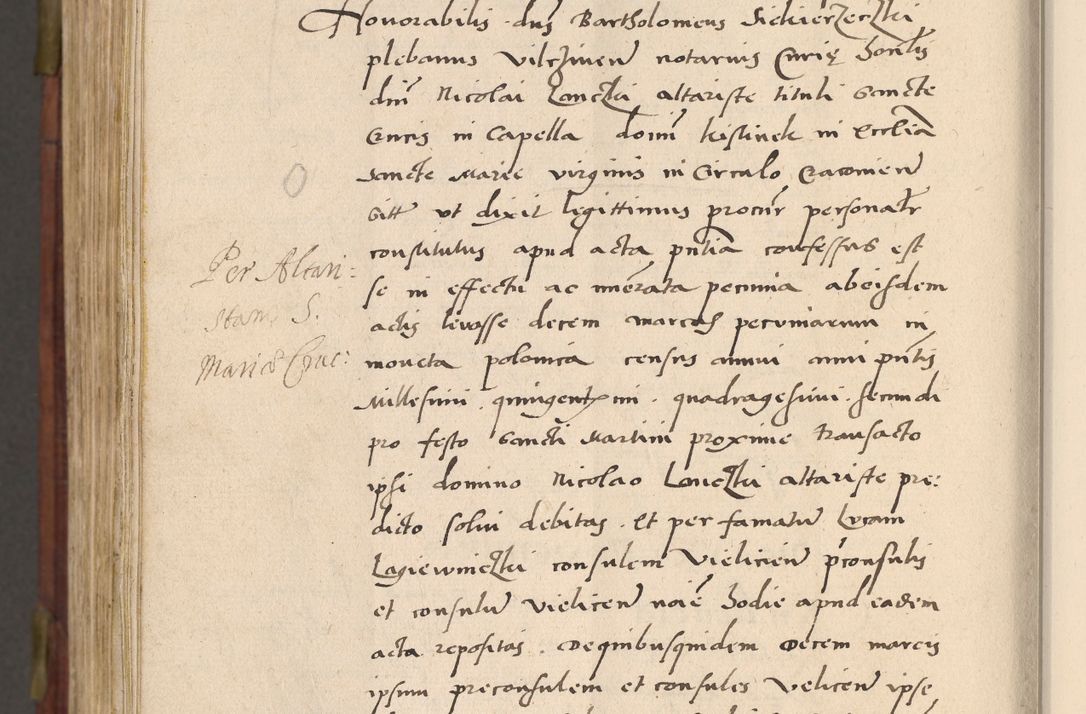 Honorabilis dns Bartholomeus Siekierzeczki
plebanus Vilczinen notarius Curię honlis
dni Nicolai Lanczki altariste tituli Sancte
Crucis in Capella domi in Ecclia
Sancte Marie virginis in Circulo Cracovien
sitt ut dixit legittimus procur personalr
constitutus apud acta pntia confessus est
se in effectu ac numerata pecunia ab eisdem
actis levasse decem marcas pecuniarum in
moneta polonica census annui anni pntis
Millesimi quingentesimi quadragesimi secundi
pro festo Sancti Martini proxime transacto
ipsi domino Nicolao Lanczki altariste pre:
dicto solui debitas. Et per famatu Lucam
Lagiewniczki consulem Vielicien pconsulis
et consulu Vielicen noie hodie apud eadem
acta repositas. De quibusquidem Decem marcis
ipsum preconsulem et consules Velicen ipse
Per Altari:
stam S.
Mariæ Crac: